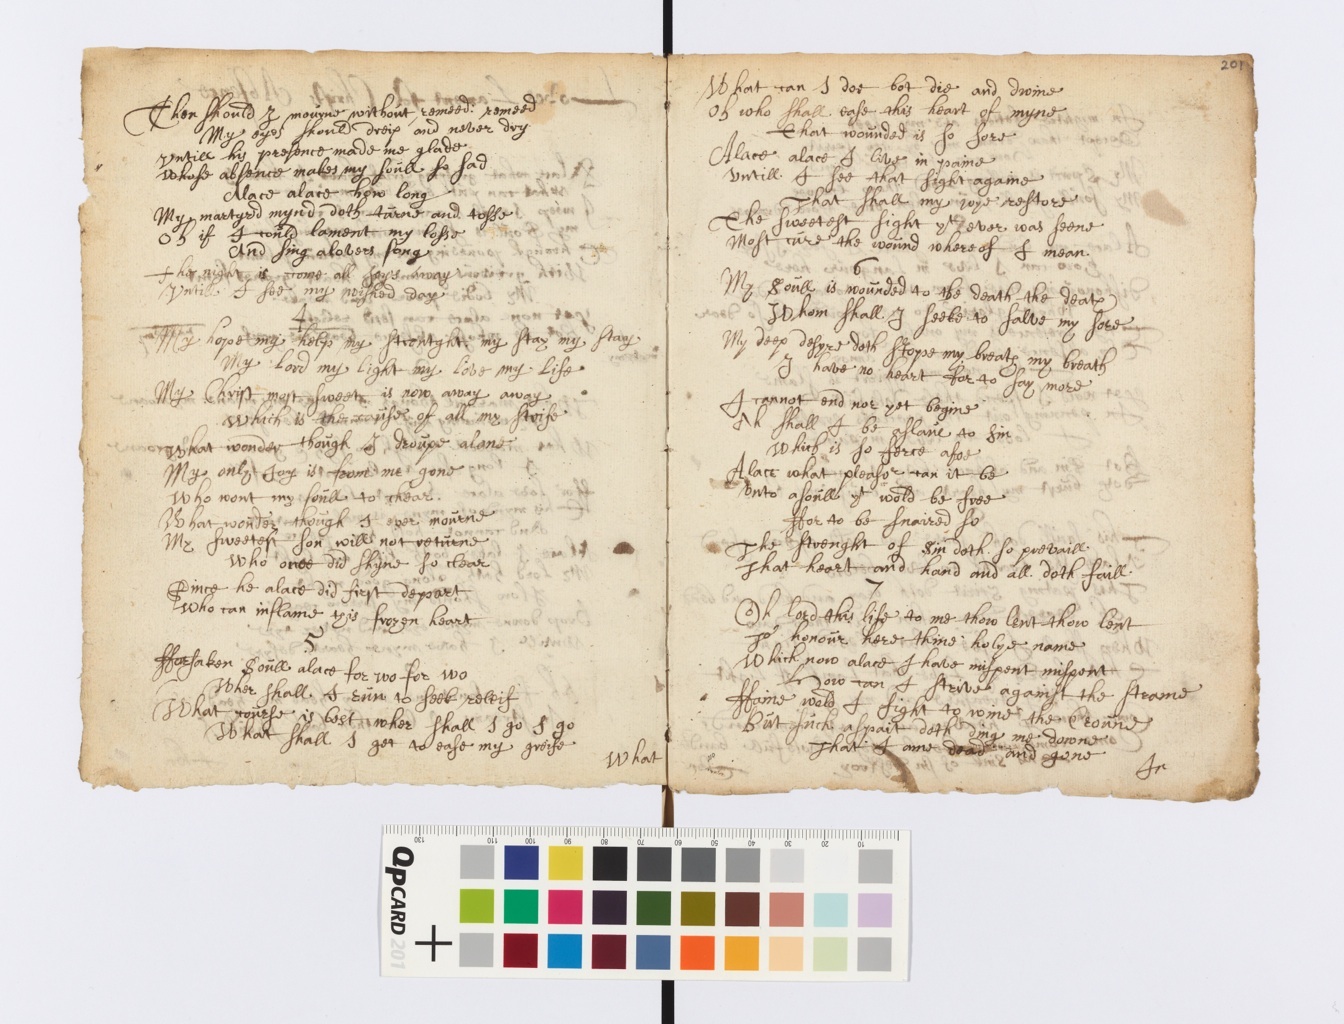 Then should I mourne without remeed: remeed
My eyes should dreip and never dry
Untill his presence made me glade
Whose absence makes my soull so sad
Alace alace how long
My martyrd mynd doth turne and tosse
Oh if I could lament my losse
And sing a lovers song
The night is come all joyes away
Untill I see my wished day
4
My hope my help my strenght my stay my stay
My lord my light my love my life
My Christ most sweet is now away away
Which is the cause of all my stryfe
What wonder though I droupe alane
My only joy is from me gone
Who wont my soull to chear.
What wonder though I ever mourne
My sweetest son will not returne
Who once did shyne so clear
Since he alace did first depart
Who can inflame this frozen heart
5
fforsaken soull alace for wo for wo
Wher shall I run to seek releif
What course is best wher shall I go I go
What shall I get to ease my greife
What
201
What can I doe bot die and dwine
Oh who shall ease this heart of myne
That wounded is so sore
Alace alace I live in paine
Untill I see that sight againe
That shall my joye restore
The sweetest sight yt ever was seene
Most cure the wound whereof I mean
6
My soull is wounded to the death the death
Whom shall I seeke to salve my sore
My deep desyre doth stope my breath my breath
I have no heart for to say more
I cannot end nor yet begine
Ah shall I be a slave to sin
Which is so ferce a foe
Alace what pleasor can it be
Unto a soull yt wold be free
ffor to be snaired so
The strenght of sin doth so prevaill
That heart and hand and all doth faill
7
Oh lord this life to me thow lent thow lent
To honour here thine holye name
Which now alace I have mispent mispent
How can I strive against the streame
ffaine wold I fight to wine the Croune
But such aspait doth ding me doune
That I ame dead and gone
In
QPCARD 201
130 110 100 90 80 70 60 50 40 30 20 10